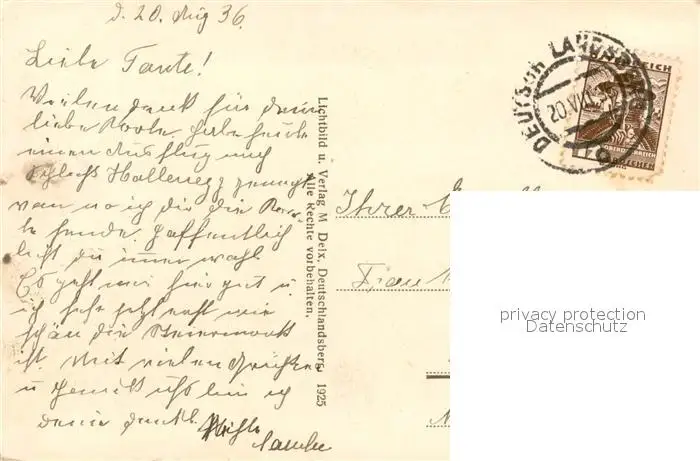 d. 20. Aug 36.
Liebe Tante!
Vielen Dank für deine
liebe Karte. Habe heute
einen Ausflug nach
Schloss Hollenegg gemacht
von wo ich dir die Karte
sende. Hoffentlich
du immer wohl
Es geht mir hier gut u.
ich sehe jetzt erst wie
schön die Steiermark
ist. Mit vielen
u bin ich
deine dankb.
Lichtbild u. Verlag M Delx, Deutschlandsberg 1925
Alle Rechte vorbehalten.
DEUTSCH LANDSBERG
20.VIII
OBERÖSTERREICH
GROSCHEN
Ihrer
Frau
privacy protection
Datenschutz